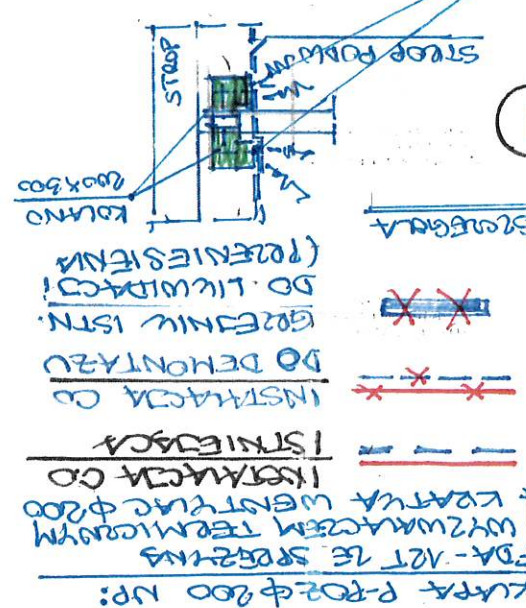 KLAPA P-POŻ Φ200 NP:
EDA-12T ZE SPRĘŻYNĄ
WYZWALACZEM TERMICZNYM
+ KRATKA WENTYLAC Φ200
INSTALACJA CO
ISTNIEJĄCA
INSTALACJA CO
DO DEMONTAŻU
GRZEJNIK ISTN.
DO LIKWIDACJI
(PRZENIESIENIA
SZCZEGÓŁ A
KOLANO
200x300
STROP PODWJN
STROP